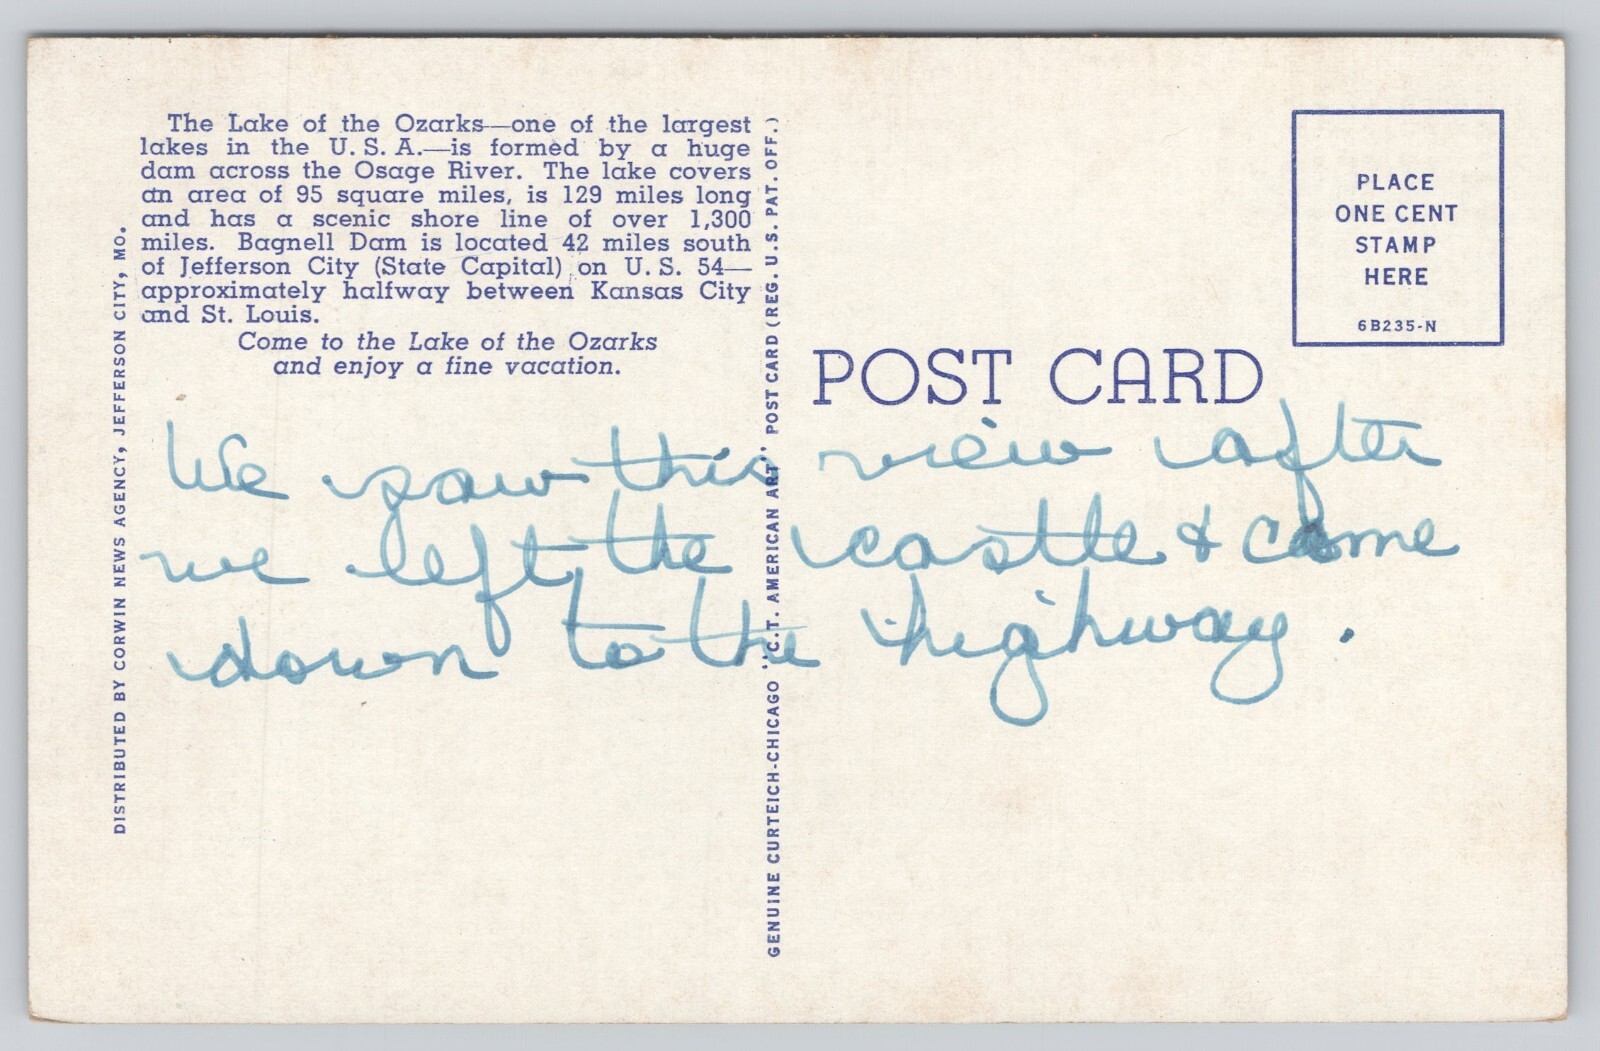 The Lake of the Ozarks—one of the largest
lakes in the U. S. A.—is formed by a huge
dam across the Osage River. The lake covers
an area of 95 square miles, is 129 miles long
and has a scenic shore line of over 1,300
miles. Bagnell Dam is located 42 miles south
of Jefferson City (State Capital) on U. S. 54—
approximately halfway between Kansas City
and St. Louis.
Come to the Lake of the Ozarks
and enjoy a fine vacation.
DISTRIBUTED BY CORWIN NEWS AGENCY, JEFFERSON CITY, MO.
GENUINE CURTEICH-CHICAGO "C.T. AMERICAN ART" POST CARD (REG. U.S. PAT. OFF.)
PLACE
ONE CENT
STAMP
HERE
6B235-N
POST CARD
We saw this view after
we left the castle & came
down to the highway.